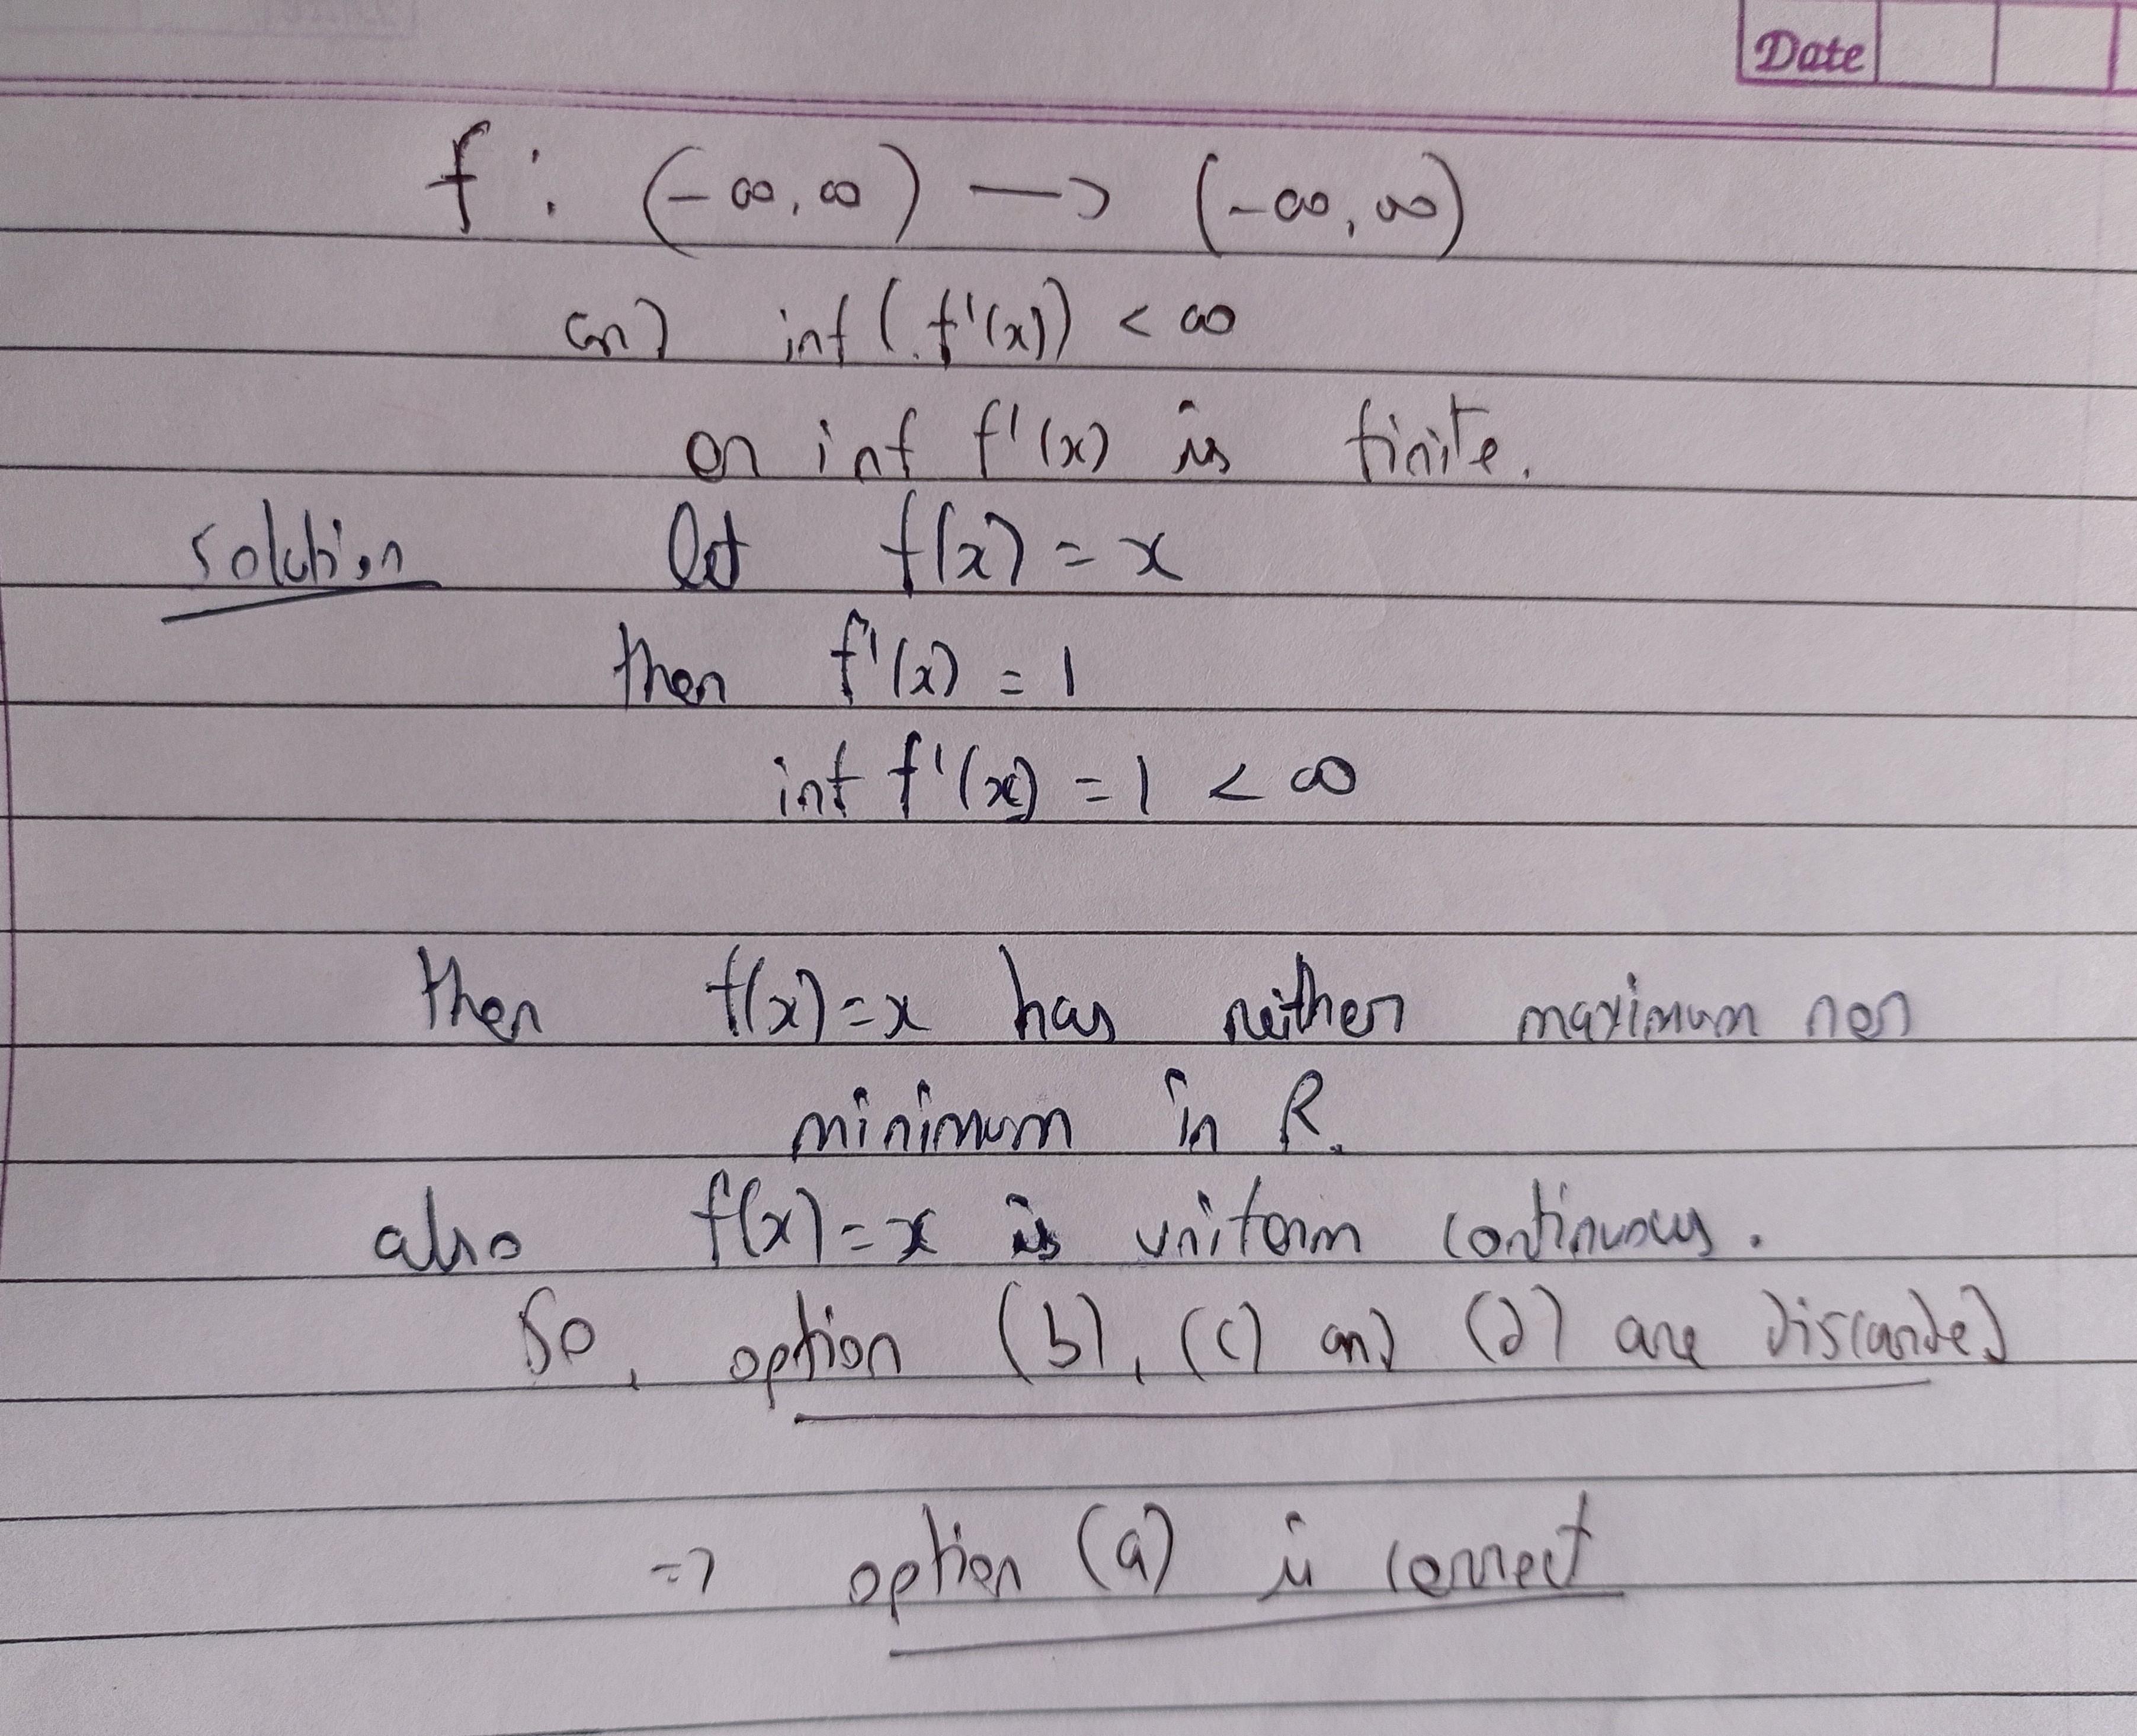 Date
f : (-∞, ∞) → (-∞, ∞)
and inf (f'(x)) < ∞
or inf f'(x) is finite.
solution let f(x) = x
then f'(x) = 1
inf f'(x) = 1 < ∞
then f(x) = x has neither maximum nor
minimum in R.
also f(x) = x is uniform continuous.
So, option (b), (c) and (d) are discarded
⇒ option (a) is correct